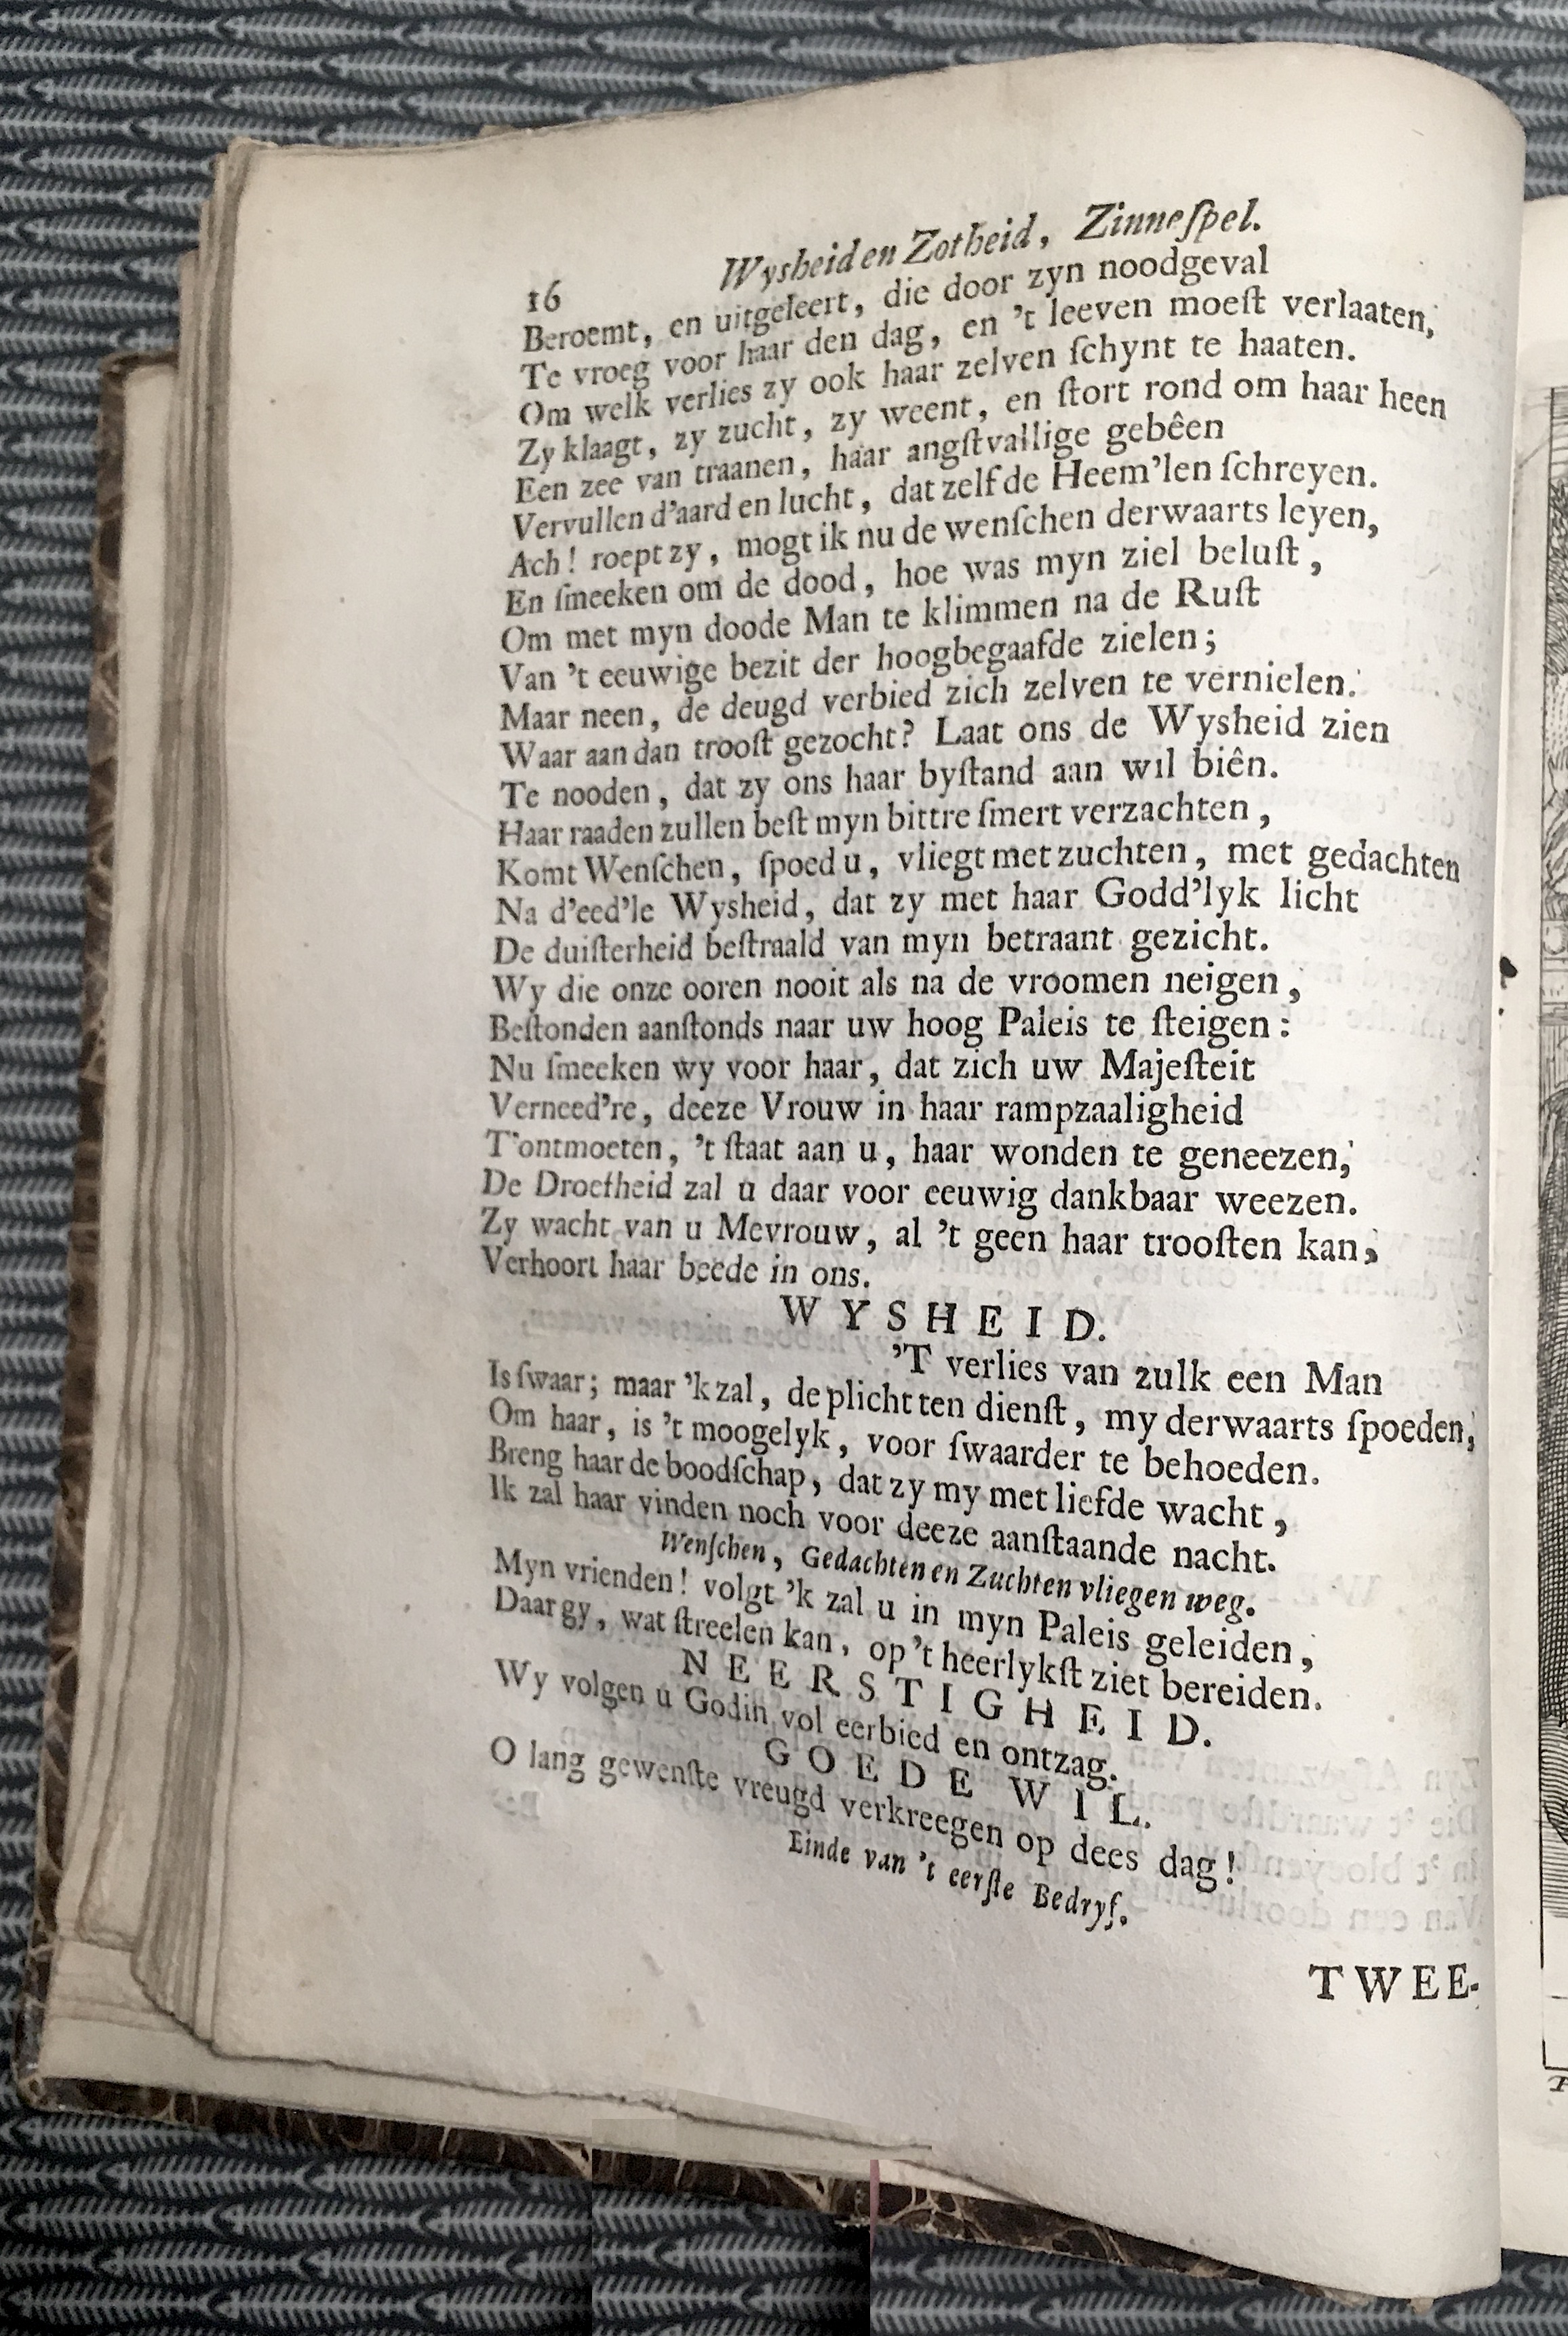 16 Wysheid en Zotheid, Zinneſpel.
Beroemt, en uitgeleert, die door zyn noodgeval
Te vroeg voor haar den dag, en 't leeven moeſt verlaaten,
Om welk verlies zy ook haar zelven ſchynt te haaten.
Zy klaagt, zy zucht, zy weent, en ſtort rond om haar heen
Een zee van traanen, haar angſtvallige gebêen
Vervullen d'aard en lucht, dat zelf de Heem'len ſchreyen.
Ach! roept zy, mogt ik nu de wenſchen derwaarts leyen,
En ſmeeken om de dood, hoe was myn ziel beluſt,
Om met myn doode Man te klimmen na de Ruſt
Van 't eeuwige bezit der hoogbegaafde zielen;
Maar neen, de deugd verbied zich zelven te vernielen.
Waar aan dan trooſt gezocht? Laat ons de Wysheid zien
Te nooden, dat zy ons haar byſtand aan wil biên.
Haar raaden zullen beſt myn bittre ſmert verzachten,
Komt Wenſchen, ſpoed u, vliegt met zuchten, met gedachten
Na d'eed'le Wysheid, dat zy met haar Godd'lyk licht
De duiſterheid beſtraald van myn betraant gezicht.
Wy die onze ooren nooit als na de vroomen neigen,
Beſtonden aanſtonds naar uw hoog Paleis te ſteigen:
Nu ſmeeken wy voor haar, dat zich uw Majeſteit
Verneed're, deeze Vrouw in haar rampzaaligheid
T'ontmoeten, 't ſtaat aan u, haar wonden te geneezen,
De Droefheid zal u daar voor eeuwig dankbaar weezen.
Zy wacht van u Mevrouw, al 't geen haar trooſten kan,
Verhoort haar beede in ons.
WYSHEID.
'T verlies van zulk een Man
Is ſwaar; maar 'k zal, de plicht ten dienſt, my derwaarts ſpoeden,
Om haar, is 't moogelyk, voor ſwaarder te behoeden.
Breng haar de boodſchap, dat zy my met liefde wacht,
Ik zal haar vinden noch voor deeze aanſtaande nacht.
Wenſchen, Gedachten en Zuchten vliegen weg.
Myn vrienden! volgt 'k zal u in myn Paleis geleiden,
Daar gy, wat ſtreelen kan, op 't heerlykſt ziet bereiden.
NEERSTIGHEID.
Wy volgen u Godin vol eerbied en ontzag.
GOEDE WIL.
O lang gewenſte vreugd verkreegen op dees dag!
Einde van 't eerſte Bedryf.
TWEE-